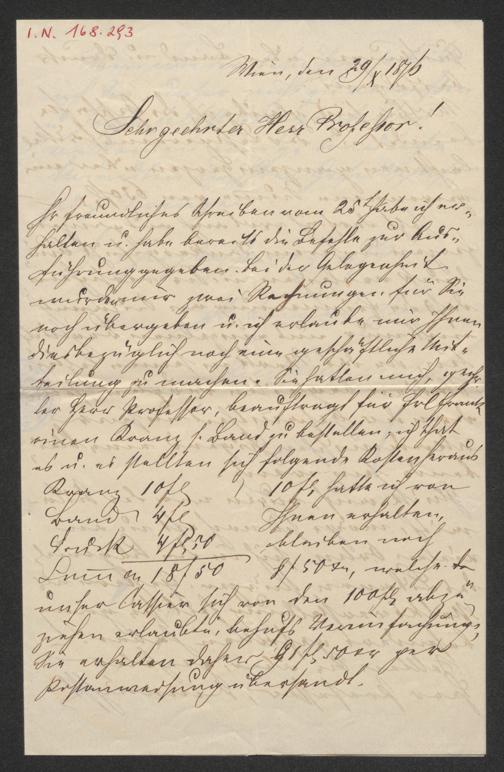 I. N. 168.293
Wien, den 29/X 1876
Sehr geehrter Herr Professor!
Ihr freundliches Schreiben vom 25 habe ich er-
halten u. habe bereits die Befehle zur Aus-
führung gegeben. Bei der Gelegenheit
wurden mir zwei Rechnungen für Sie
noch übergeben u. ich erlaube mir Ihnen
diesbezüglich noch eine geschäftliche Mit-
theilung zu machen. Sie hatten mich, geehr-
ter Herr Professor, beauftragt für Frl
einen Kranz s. Band zu bestellen, ich that
es u. es stellten sich folgende Kosten heraus
Kranz 10 fl
Band 4 fl
Druck 4 fl 50
Summa 18 f 50
10 fl hatte ich von
Ihnen erhalten,
bleiben noch
8 f 50 xr, welche der
unser Cassier sich von den 100 fl abzu-
ziehen erlaubte, behufs Vereinfachung,
Sie erhalten daher 91 fl, 50 xr per
Postanweisung übersandt.